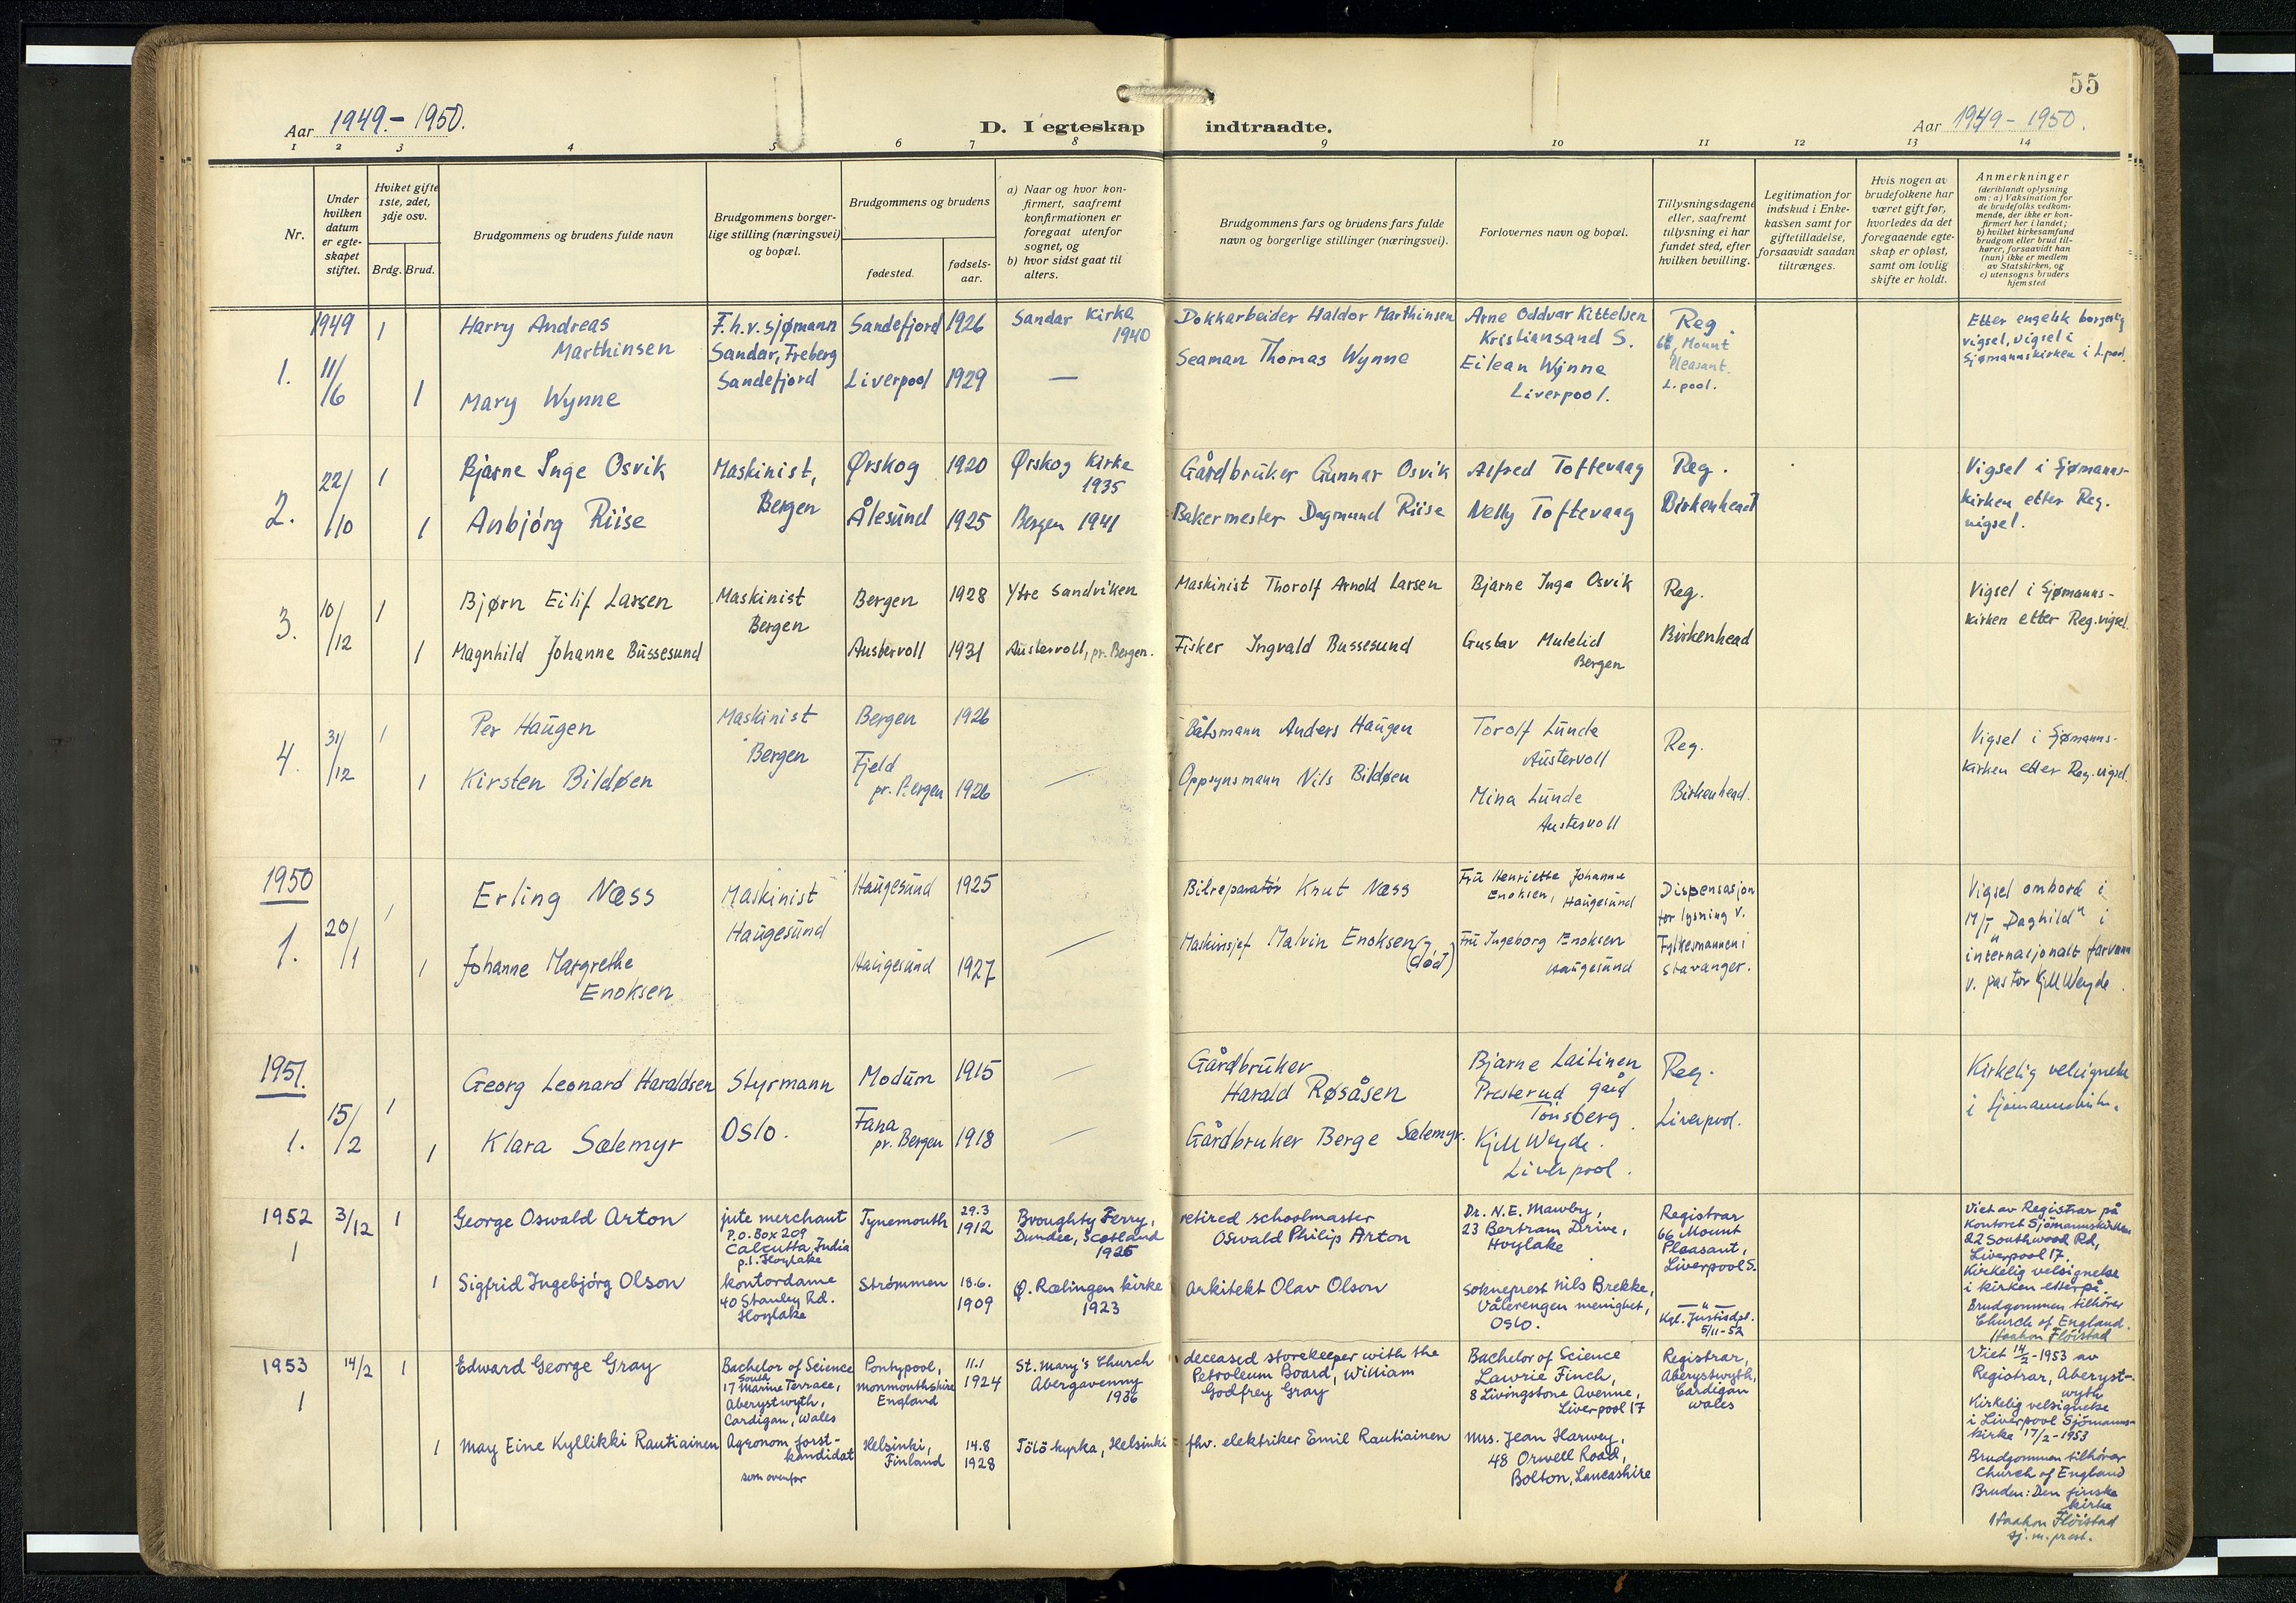 55
Aar 1949.- 1950.
D. I egteskap indtraadte.
Aar 1949 - 1950.
1 2 3 4 5 6 7 8 9 10 11 12 13 14
Nr.
Under
hvilken
datum
er egte-
skapet
stiftet.
Hviket gifte
1ste, 2det,
3dje osv.
Brdg. Brud.
Brudgommens og brudens fulde navn
Brudgommens borger-
lige stilling (næringsvei)
og bopæl.
Brudgommens og brudens
fødested.
fødsels-
aar.
a) Naar og hvor kon-
firmert, saafremt
konfirmationen er
foregaat utenfor
sognet, og
b) hvor sidst gaat til
alters.
Brudgommens fars og brudens fars fulde
navn og borgerlige stillinger (næringsvei).
Forlovernes navn og bopæl.
Tillysningsdagene
eller, saafremt
tillysning ei har
fundet sted, efter
hvilken bevilling.
Legitimation for
indskud i Enke-
kassen samt for
giftetilladelse,
forsaavidt saadan
tiltrænges.
Hvis nogen av
brudefolkene har
været gift før,
hvorledes da det
foregaaende egte-
skap er opløst,
samt om lovlig
skifte er holdt.
Anmerkninger
(deriblandt oplysning
om: a) Vaksination for
de brudefolks vedkom-
mende, der ikke er kon-
firmert her i landet;
b) hvilket kirkesamfund
brudgom eller brud til-
hører, forsaavidt han
(hun) ikke er medlem
av Statskirken, og
c) utensogns bruders
hjemsted
1949
1.
11/6
1
1
Harry Andreas
Marthinsen
Mary Wynne
F.h.v. sjømann
Sandar, Freberg
Sandefjord
Sandefjord 1926
Liverpool 1929
Sandar Kirke
1940
—
Dokkarbeider Haldor Marthinsen
Seaman Thomas Wynne
Arne Oddvar Kittelsen
Kristiansand S.
Eilean Wynne
Liverpool.
Reg.
66, Mount
Pleasant.
L.pool.
Etter engelsk borgerlig
vigsel, vigsel i
Sjømannskirken i L.pool.
2.
22/10
1
1
Bjarne Inge Osvik
Anbjørg Riise
Maskinist,
Bergen
Ørskog 1920
Ålesund 1925
Ørskog Kirke
1935
Bergen 1941
Gårdbruker Gunnar Osvik
Bakermester Dagmund Riise
Alfred Toftevaag
Nelly Toftevaag
Reg.
Birkenhead
Vigsel i Sjømanns-
kirken etter Reg.
vigsel.
3.
10/12
1
1
Bjørn Eilif Larsen
Magnhild Johanne Bussesund
Maskinist
Bergen
Bergen 1928
Austervoll 1931
Ytre Sandviken
Austervoll, pr. Bergen.
Maskinist Thorolf Arnold Larsen
Fisker Ingvald Bussesund
Bjarne Inge Osvik
Gustav Mutelid
Bergen
Reg.
Birkenhead
Vigsel i Sjømanns-
kirken etter Reg. vigsel.
4.
31/12
1
1
Per Haugen
Kirsten Bildøen
Maskinist
Bergen
Bergen 1926
Fjeld
pr. Bergen 1926
—
Båtsmann Anders Haugen
Oppsynsmann Nils Bildøen
Torolf Lunde
Austervoll
Mina Lunde
Austervoll
Reg.
Birkenhead.
Vigsel i Sjømanns-
kirken etter Reg. vigsel
1950
1.
20/1
1
1
Erling Næss
Johanne Margrethe
Enoksen
Maskinist
Haugesund
Haugesund 1925
Haugesund 1927
—
Bilreparatør Knut Næss
Maskinsjef Malvin Enoksen (død)
Fru Henriette Johanne
Enoksen, Haugesund
Fru Ingeborg Enoksen
Haugesund
Dispensasjon
for lysning v.
Fylkesmannen i
Stavanger.
Vigsel ombord i
M/T „Daghild" i
internasjonalt farvann
v. pastor Kjell Weyde.
1951.
1.
15/2
1
1
Georg Leonard Haraldsen
Klara Sælemyr
Styrmann
Oslo.
Modum 1915
Fana
pr. Bergen 1918
—
—
Gårdbruker
Harald Røsåsen
Gårdbruker Berge Sælemyr.
Bjarne Laitinen
Presterud gård
Tønsberg.
Kjell Weyde.
Liverpool.
Reg.
Liverpool.
Kirkelig velsignelse
i Sjømannskirken.
1952
1
3/12
1
1
George Oswald Arton
Sigfrid Ingebjørg Olson
jute merchant
P.O. Box 209
Calcutta, India
p.t. Hoylake
kontordame
40 Stanley Rd.
Hoylake
Tynemouth
29.3
1912
Strømmen
18.6.
1909
Broughty Ferry,
Dundee, Scotland
1926
Ø. Rælingen kirke
1923
retired schoolmaster
Oswald Philip Arton
arkitekt Olav Olson
Dr. N.E. Mawby,
23 Bertram Drive,
Hoylake
Sokneprest Nils Brekke,
Vålerengen menighet,
Oslo.
Registrar
66 Mount
Pleasant,
Liverpool 3.
— " —
Kgl. Justisdpt.
5/11-52
Viet av Registrar på
Kontoret Sjömannskirken
22 Southwood Rd,
Liverpool 17.
Kirkelig velsignelse
i kirken etterpå.
Brudgommen tilhører
Church of England.
Haakon Flöistad
1953
1
14/2
1
1
Edward George Gray
May Eine Kyllikki Rautiainen
Bachelor of Science
17 South Marine Terrace,
Aberystwyth,
Cardigan, Wales
Agronom, forst-
kandidat
som ovenfor
Pontypool,
Monmouthshire
England
11.1
1924
Helsinki,
Finland
14.8
1928
St. Mary's Church
Abergavenny
1936
Tölö kyrka, Helsinki
deceased storekeeper with the
Petroleum Board, William
Godfrey Gray
fhv. elektriker Emil Rautiainen
Bachelor of Science
Lawrie Finch,
8 Livingstone Avenue,
Liverpool 17
Mrs. Jean Harwey,
48 Orwell Road,
Bolton, Lancashire
Registrar,
Aberystwyth,
Cardigan
Wales
Viet 14/2-1953 av
Registrar, Aberyst-
wyth
Kirkelig velsignelse
i Liverpool Sjömanns-
kirke 17/2-1953
Brudgommen tilhører
Church of England
Bruden: Den finske
kirke
Haakon Flöistad
sj.m.prest.